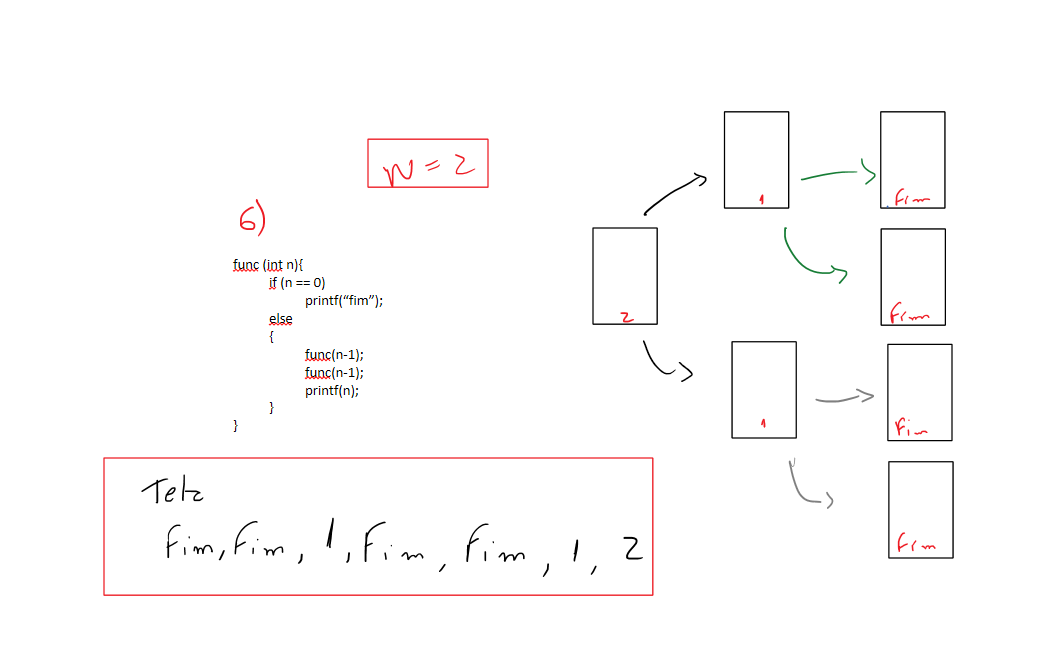 N = 2
6)
func (int n){
if (n == 0)
printf(“fim”);
else
{
func(n-1);
func(n-1);
printf(n);
}
}
Tela
fim, fim, 1, fim, fim, 1, 2
2
1
fim
fim
1
fim
fim